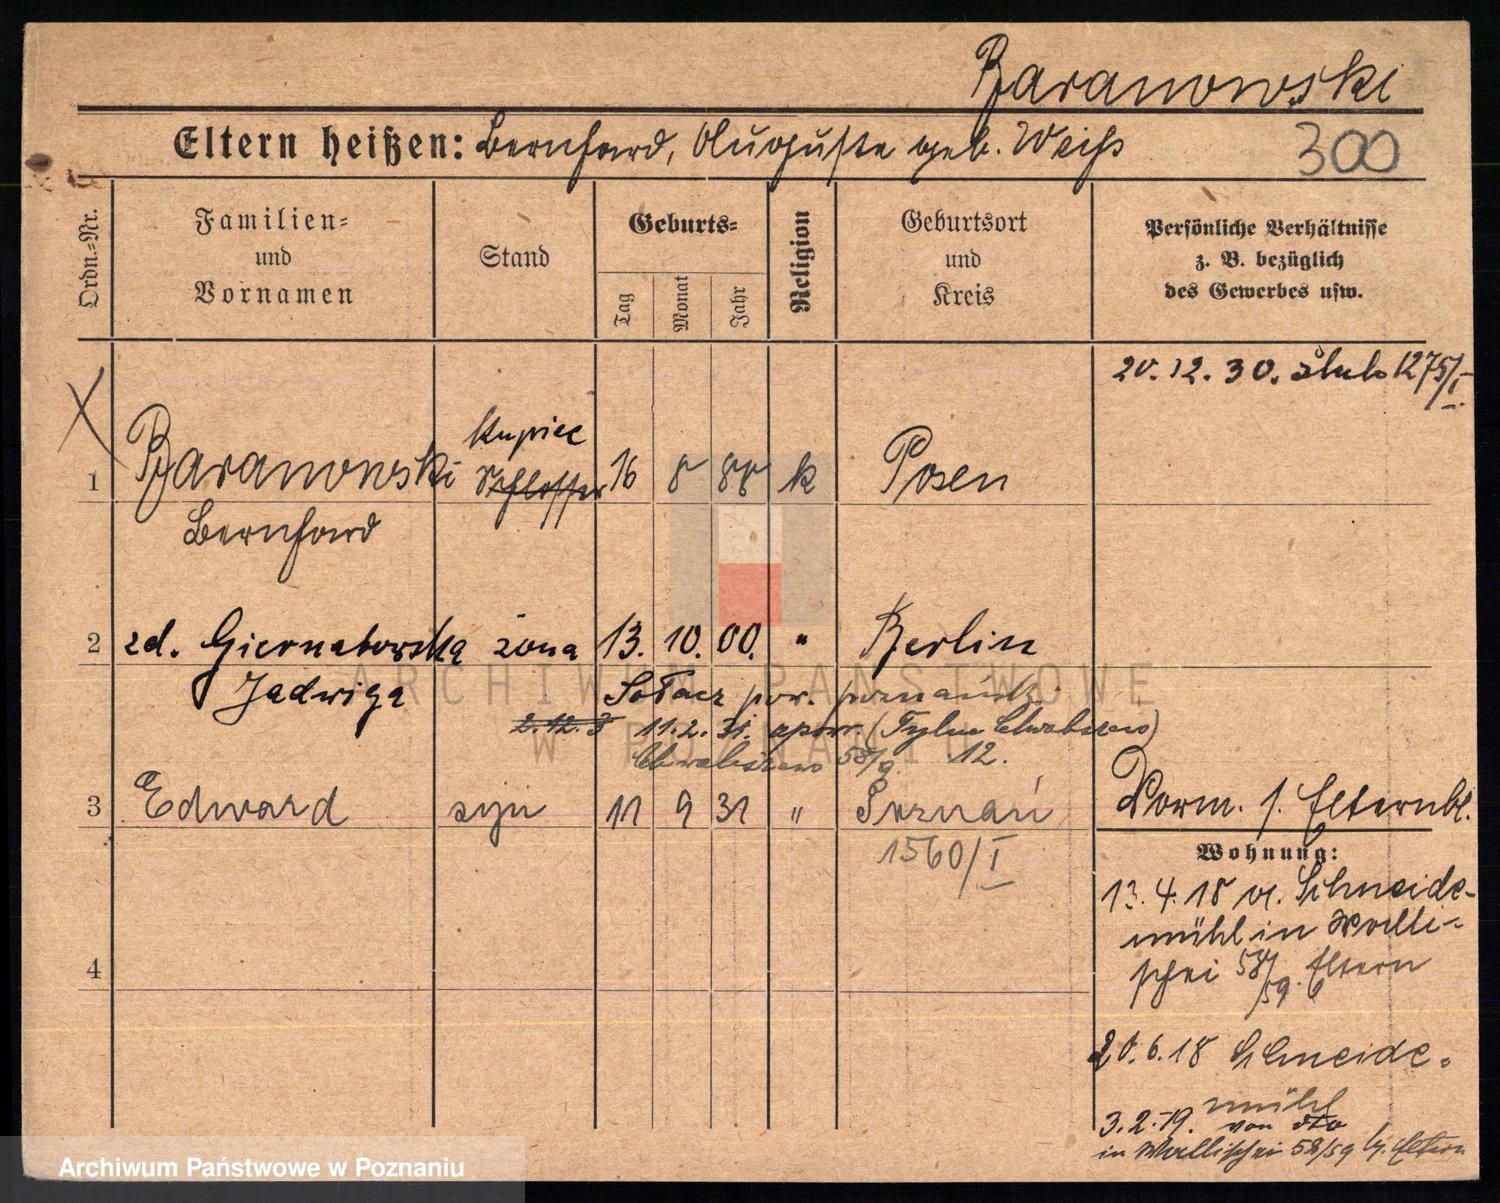 Baranowski
Eltern heißen: Bernhard, Auguste geb. Weiß
300
Ordn.-Nr.
Familien-
und
Vornamen
Stand
Geburts-
Tag
Monat
Jahr
Religion
Geburtsort
und
Kreis
Persönliche Verhältnisse
z. B. bezüglich
des Gewerbes usw.
20. 12. 30. ślub 1275/I.
X
Kupiec
1 Baranowski Schlosser 16 8 88 k Posen
Bernhard
2 zd. Giernatowska żona 13. 10. 00. " Berlin
Jadwiga
Sołacz pow. poznański
2.12.3 11.2.31. (Tylne Chwaliszewo)
Chwaliszewo 58/9. 12.
3 Edward syn 11 9 31 " Poznań
1560/I
Vorm. s. Elternbl.
Wohnung:
13. 4. 18 v. Schneide-
mühl in Walli-
schei 58/59. Eltern
20. 6. 18 Schneide-
mühl
3. 2. 19. von dto
in Wallischei 58/59 b. Eltern
4
ARCHIWUM PAŃSTWOWE
W POZNANIU
Archiwum Państwowe w Poznaniu